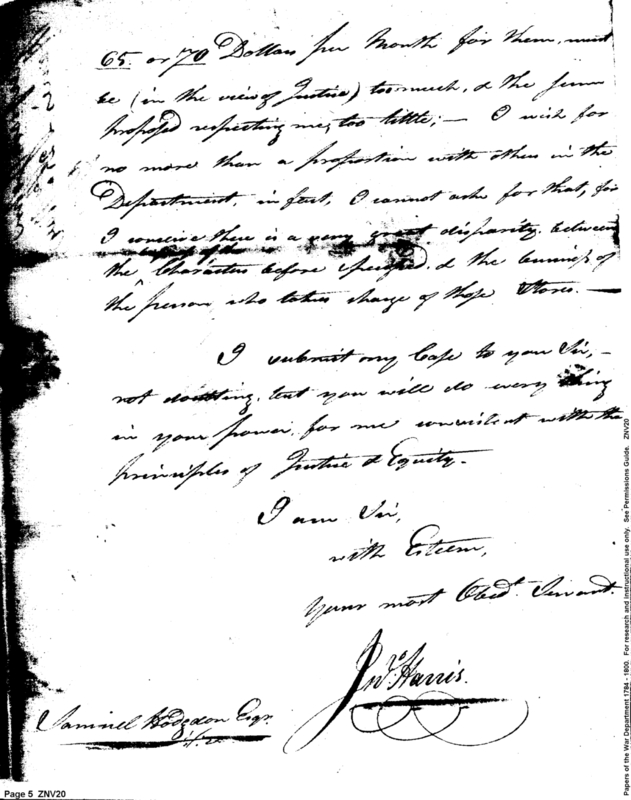 65. or 70 Dollars per Month for them, must
be (in the view of Justice) too much, & the sum
proposed respecting me, too little; — I wish for
no more than a proportion with others in the
Department, in fact, I cannot ask for that, for
I conceive there is a very great disparity between
the Characters before & the business of
the person who takes charge of those Stores. —
I submit my Case to you Sir, —
not doubting, but you will do every thing
in your power, for me consistent with the
principles of Justice & Equity.
I am Sir,
with Esteem,
Your most Obedt. Servant.
Jno. Harris.
Samuel Hodgdon Esqr.
Page 5 ZNV20
Papers of the War Department 1784 - 1800. For research and instructional use only. See Permissions Guide. ZNV20